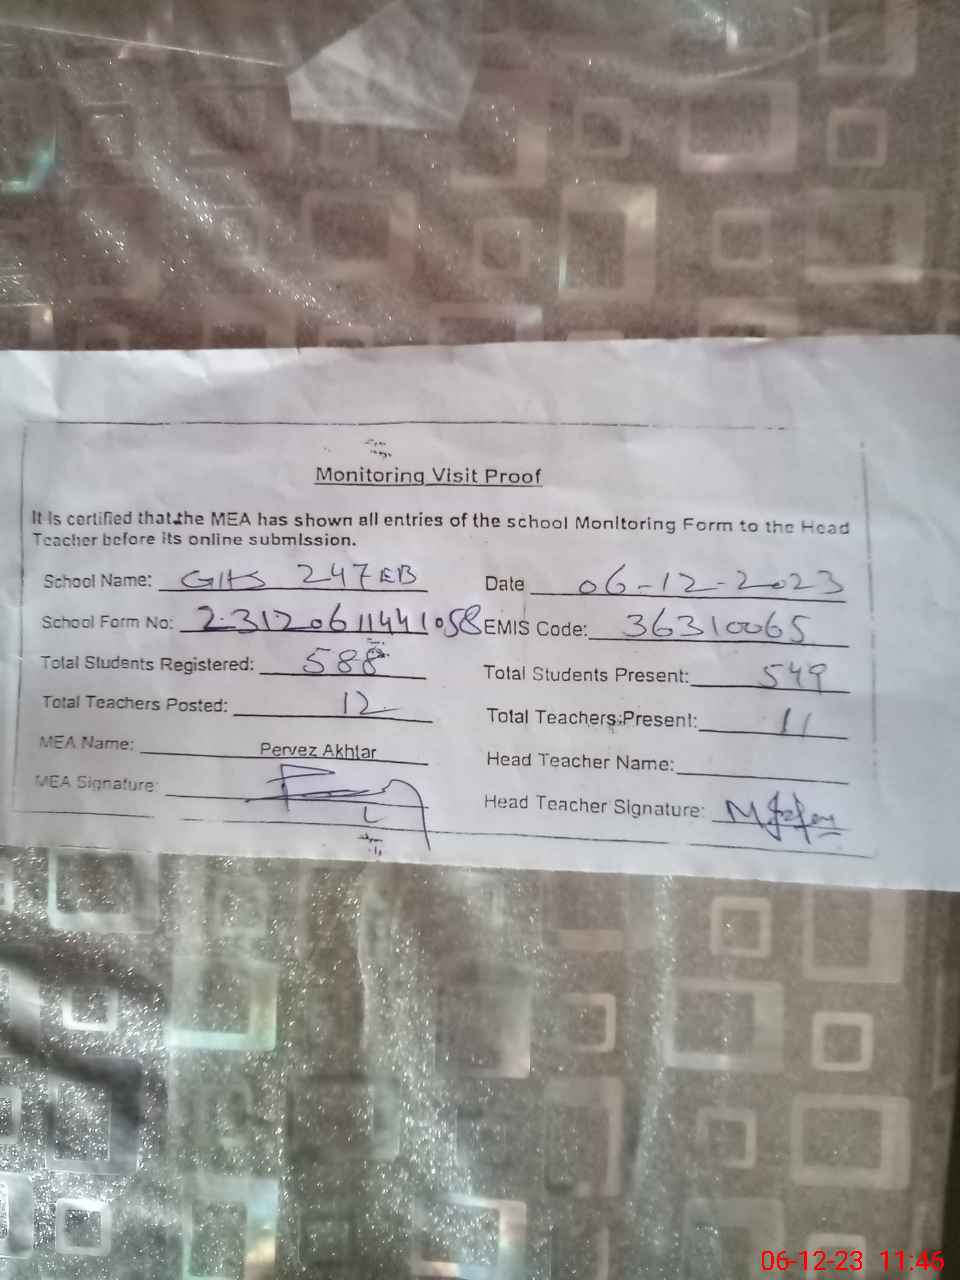 Monitoring Visit Proof
It is certified that the MEA has shown all entries of the school Monitoring Form to the Head
Teacher before its online submission.
School Name: GHS 247 EB Date 06-12-2023
School Form No: 23120611441058 EMIS Code: 36310065
Total Students Registered: 588 Total Students Present: 549
Total Teachers Posted: 12 Total Teachers Present: 11
MEA Name: Pervez Akhtar Head Teacher Name:
MEA Signature: Head Teacher Signature:
06-12-23 11:46